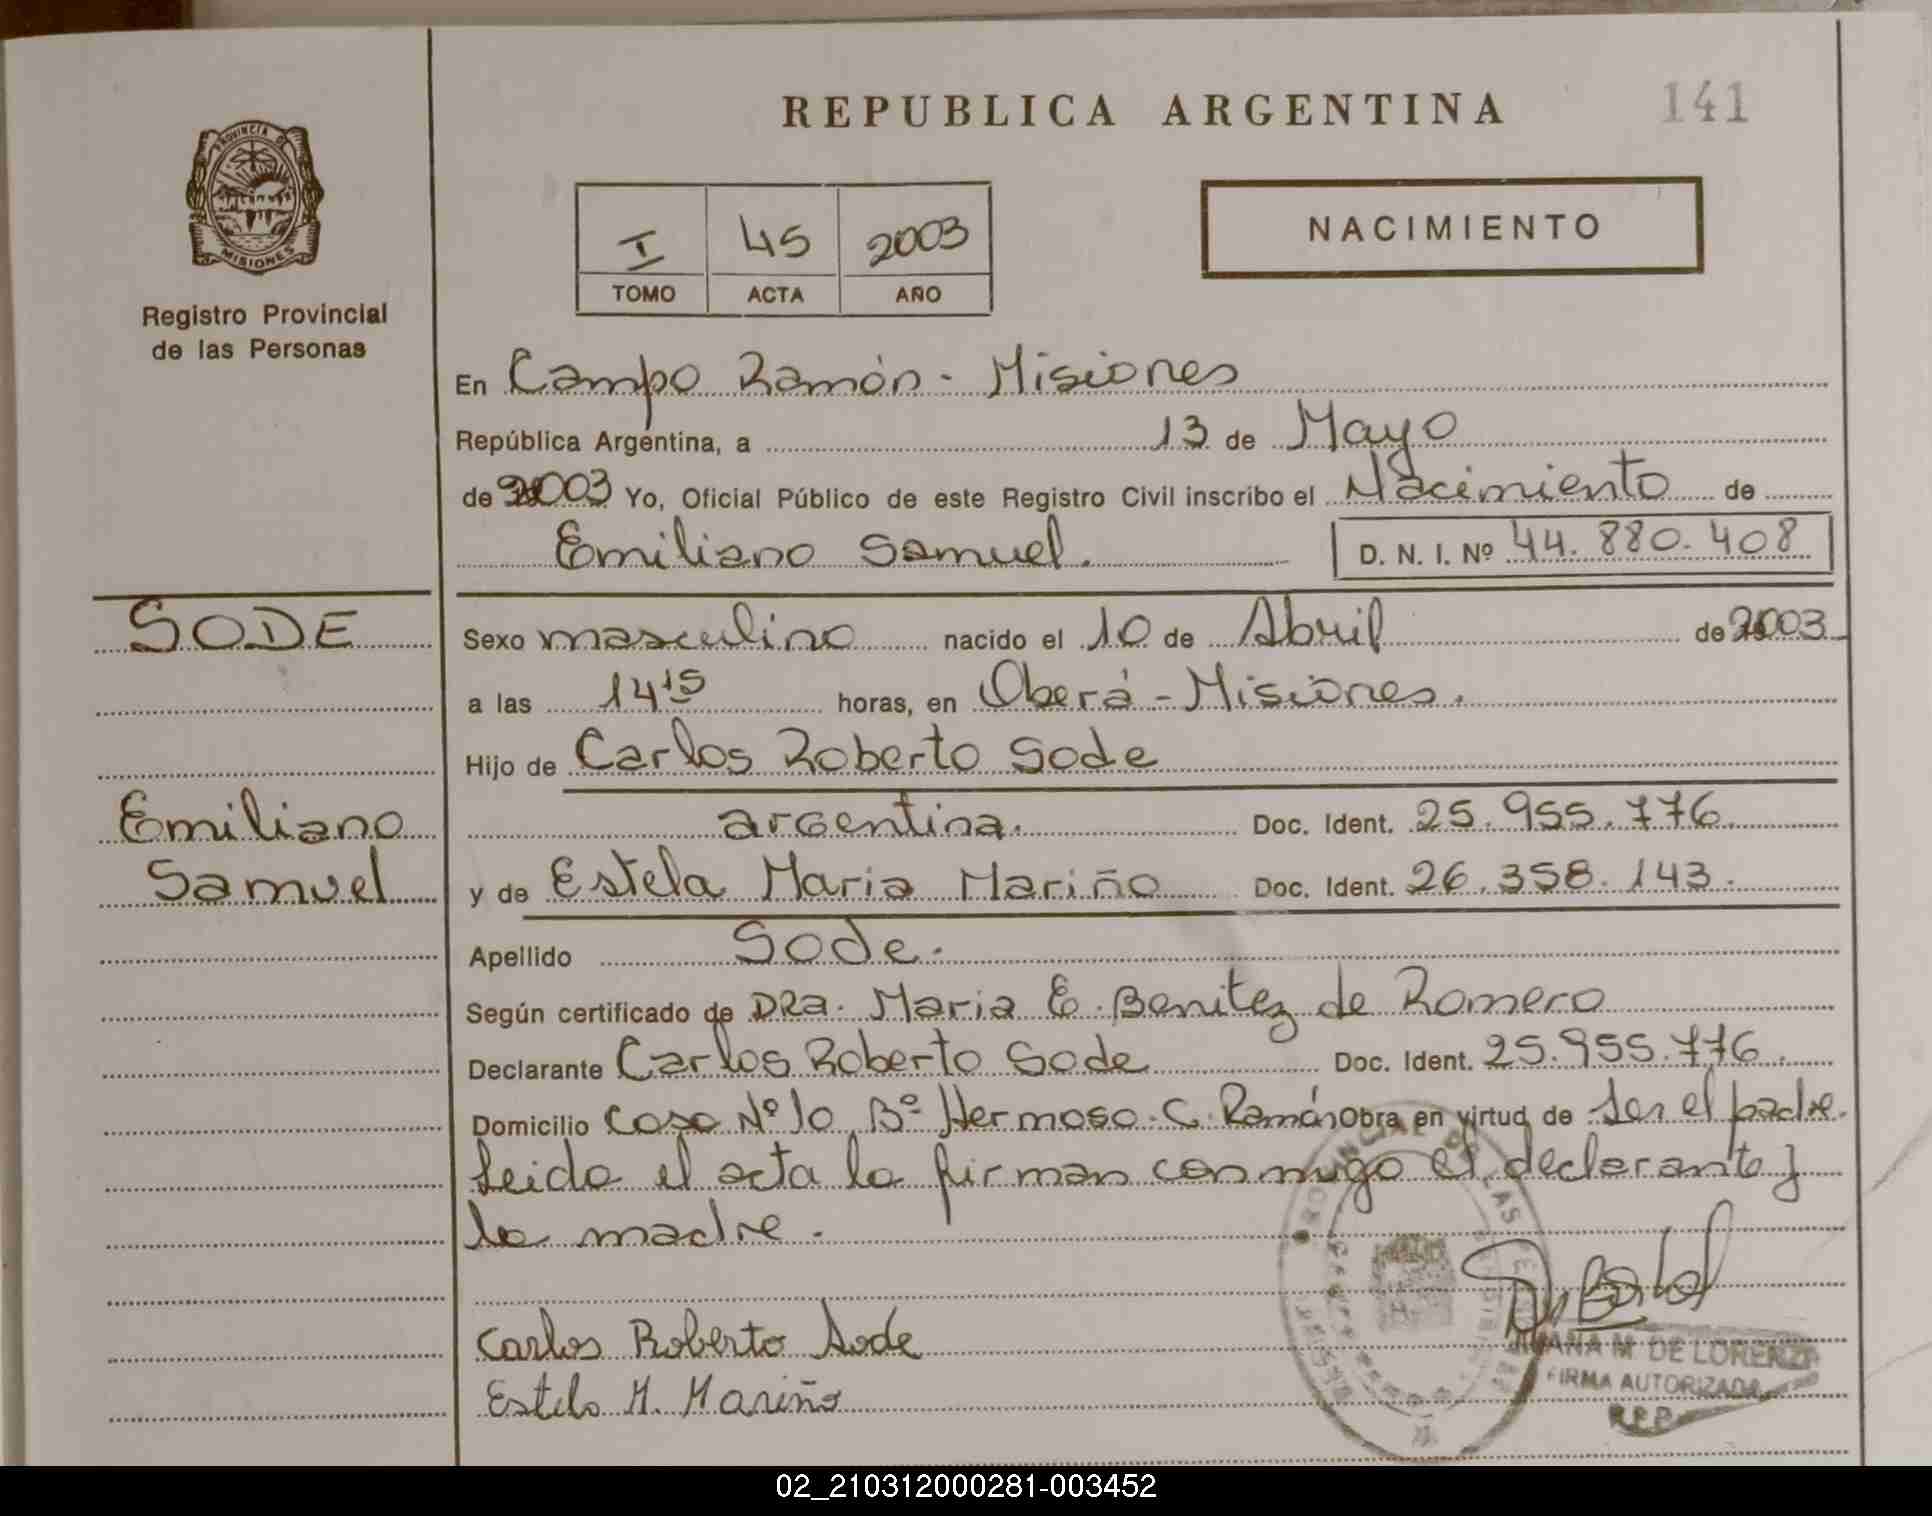 REPUBLICA ARGENTINA
141
PROVINCIA DE
MISIONES
Registro Provincial
de las Personas
I 45 2003
TOMO ACTA AÑO
NACIMIENTO
En Campo Ramón - Misiones
República Argentina, a 13 de Mayo
de 2003 Yo, Oficial Público de este Registro Civil inscribo el Nacimiento de
Emiliano Samuel. D. N. I. Nº 44.880.408
SODE
Sexo masculino nacido el 10 de Abril de 2003
a las 14 15 horas, en Oberá - Misiones.
Hijo de Carlos Roberto Sode
Emiliano
argentina. Doc. Ident. 25.955.776
Samuel
y de Estela Maria Mariño Doc. Ident. 26.358.143.
Apellido Sode.
Según certificado de DRa. Maria E. Benitez de Romero
Declarante Carlos Roberto Sode Doc. Ident. 25.955.776.
Domicilio Casa Nº 10 Bº Hermoso. C. Ramón Obra en virtud de ser el padre.
Leida el acta la firman conmigo el declarante y
la madre.
Carlos Roberto Sode
Estela M. Mariño
M. DE LORENZI
FIRMA AUTORIZADA
R.P.P.
02_210312000281-003452